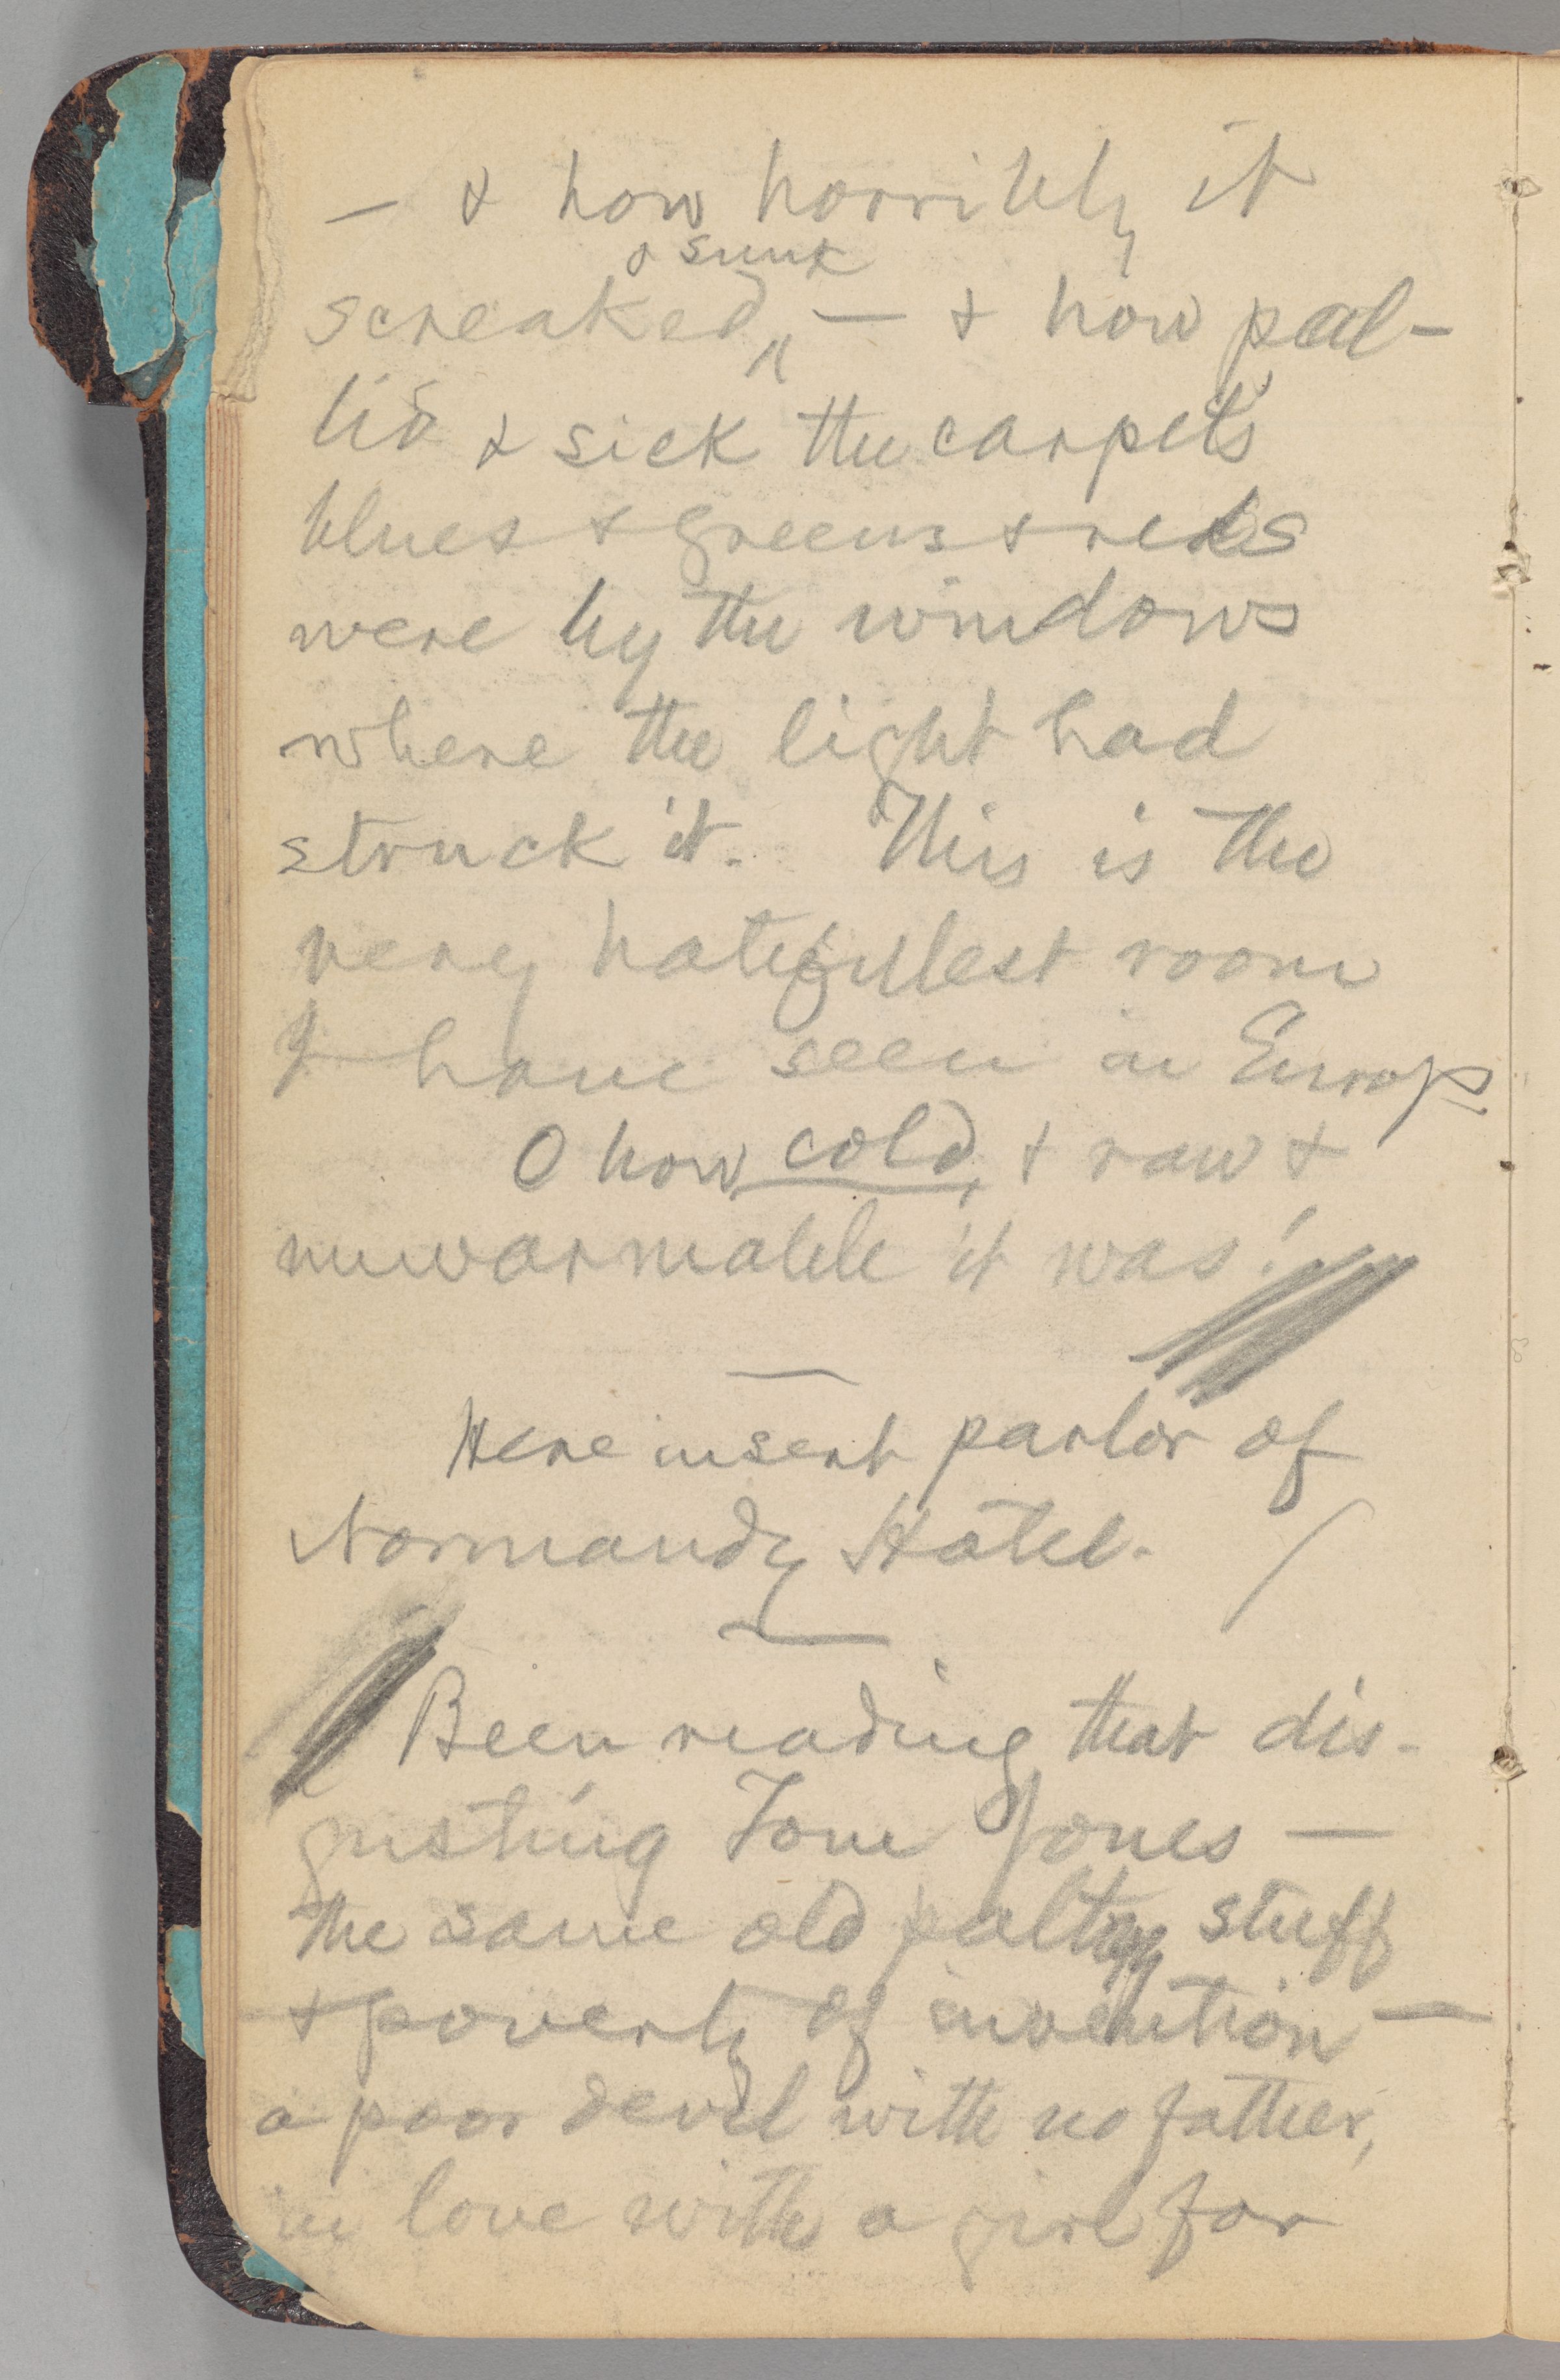 — & how horribly it
& sunk
screaked, — & how pal-
lid & sick the carpet's
blues & greens & reds
were by the windows
where the light had
struck it. This is the
very hatefullest room
I have seen in Europ
O how cold, & raw &
unwarmable it was!
Here insert parlor of
Normandy Hotel.
Been reading that dis-
gusting Tom Jones —
the same old paltry stuff
& poverty of invention —
a poor devil with no father,
in love with a girl far